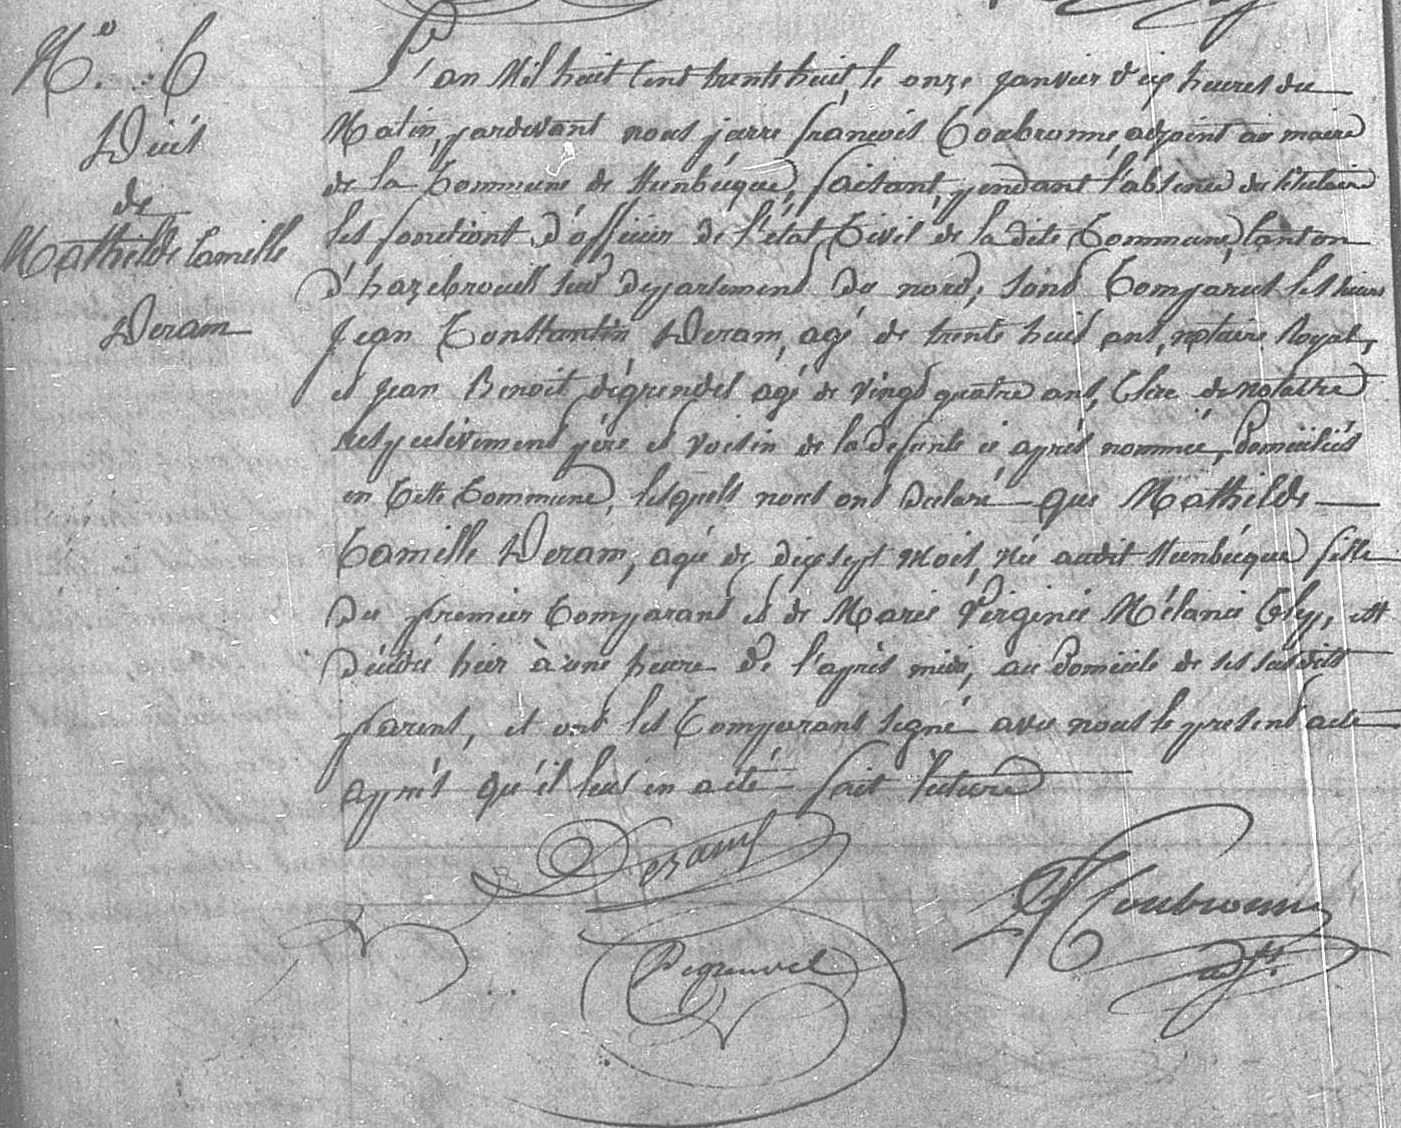 N.o 6
Décès
de
Mathilde Camille
Deram
L'an Mil huit Cent trente huit, le onze janvier dix heures du
Matin, pardevant nous pierre françois Coubronne, adjoint au maire
de la Commune de Steenbécque, faisant, pendant l'absence du titulaire
les fonctions d'officier de l'état Civil de la dite Commune, Canton
d'hazebrouck sud département du nord, sont Comparus les sieurs
Jean Constantin Deram, agé de trente huit ans, notaire Royal,
et jean Benoit dégrendel agé de vingt quatre ans, Clerc de notaire
respectivement père et voisin de la défunte ci après nommée, domiciliés
en Cette Commune, lesquels nous ont déclaré que Mathilde
Camille Deram, agée de dix sept mois, née audit Steenbécque fille
du premier Comparant et de Marie Virginie Mélanie Cley, est
décédée hier à une heure de l'après midi, au domicile de ses susdits
parens, et ont les Comparans signé avec nous le présent acte
après qu'il leur en a été fait lecture
Deram
Coubronne
Degrendel
adjt.